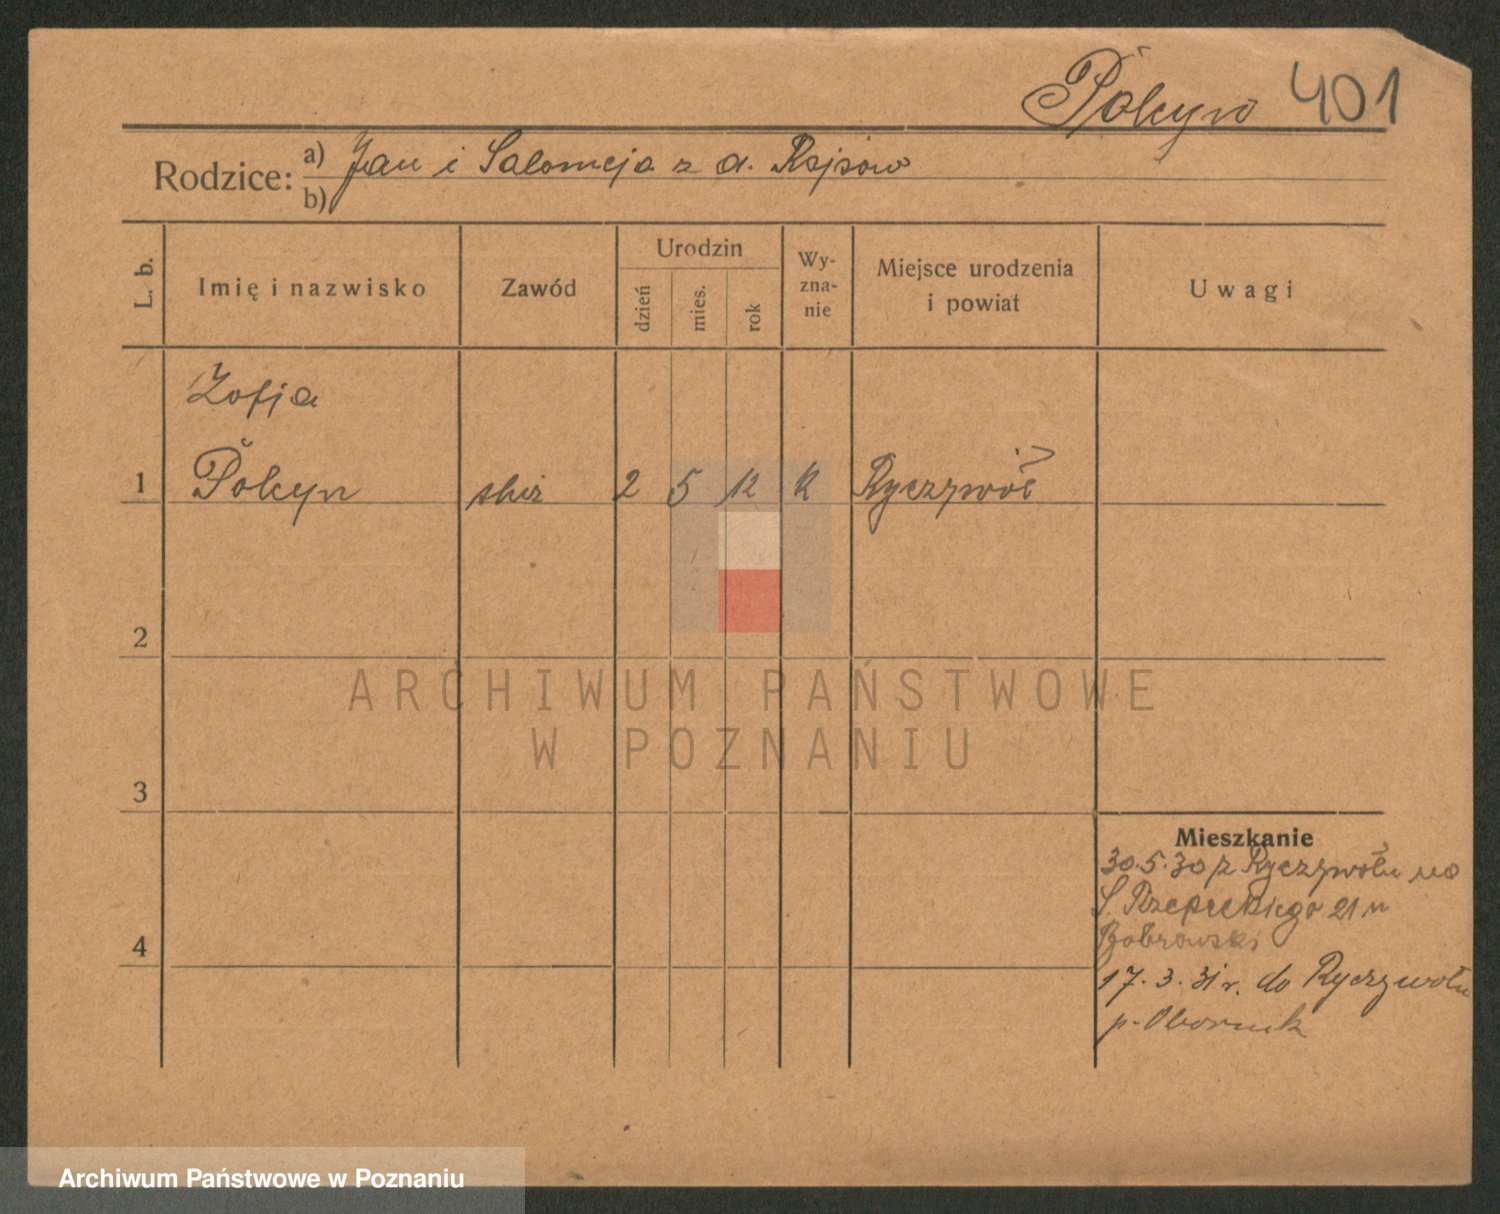 Pokyn 401
Rodzice: a) Jan i Salomeja z d.
b)
L. b.
Imię i nazwisko
Zawód
Urodzin
dzień
mies.
rok
Wy-
zna-
nie
Miejsce urodzenia
i powiat
Uwagi
Zofja
1 Pokyn służ 2 5 12 k Ryczywół
2
3
4
Mieszkanie
30.5.30 z Ryczywołu na
S. Rzepeckiego 21 u
Bobrowski
17.3.31 r. do Ryczywołu
p. Obornik
ARCHIWUM PAŃSTWOWE
W POZNANIU
Archiwum Państwowe w Poznaniu